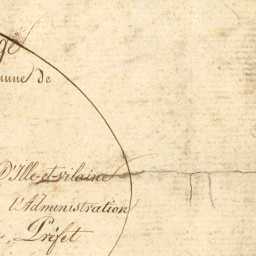 mune de
D'Ille-et-vilaine
l'Administration
Préfet